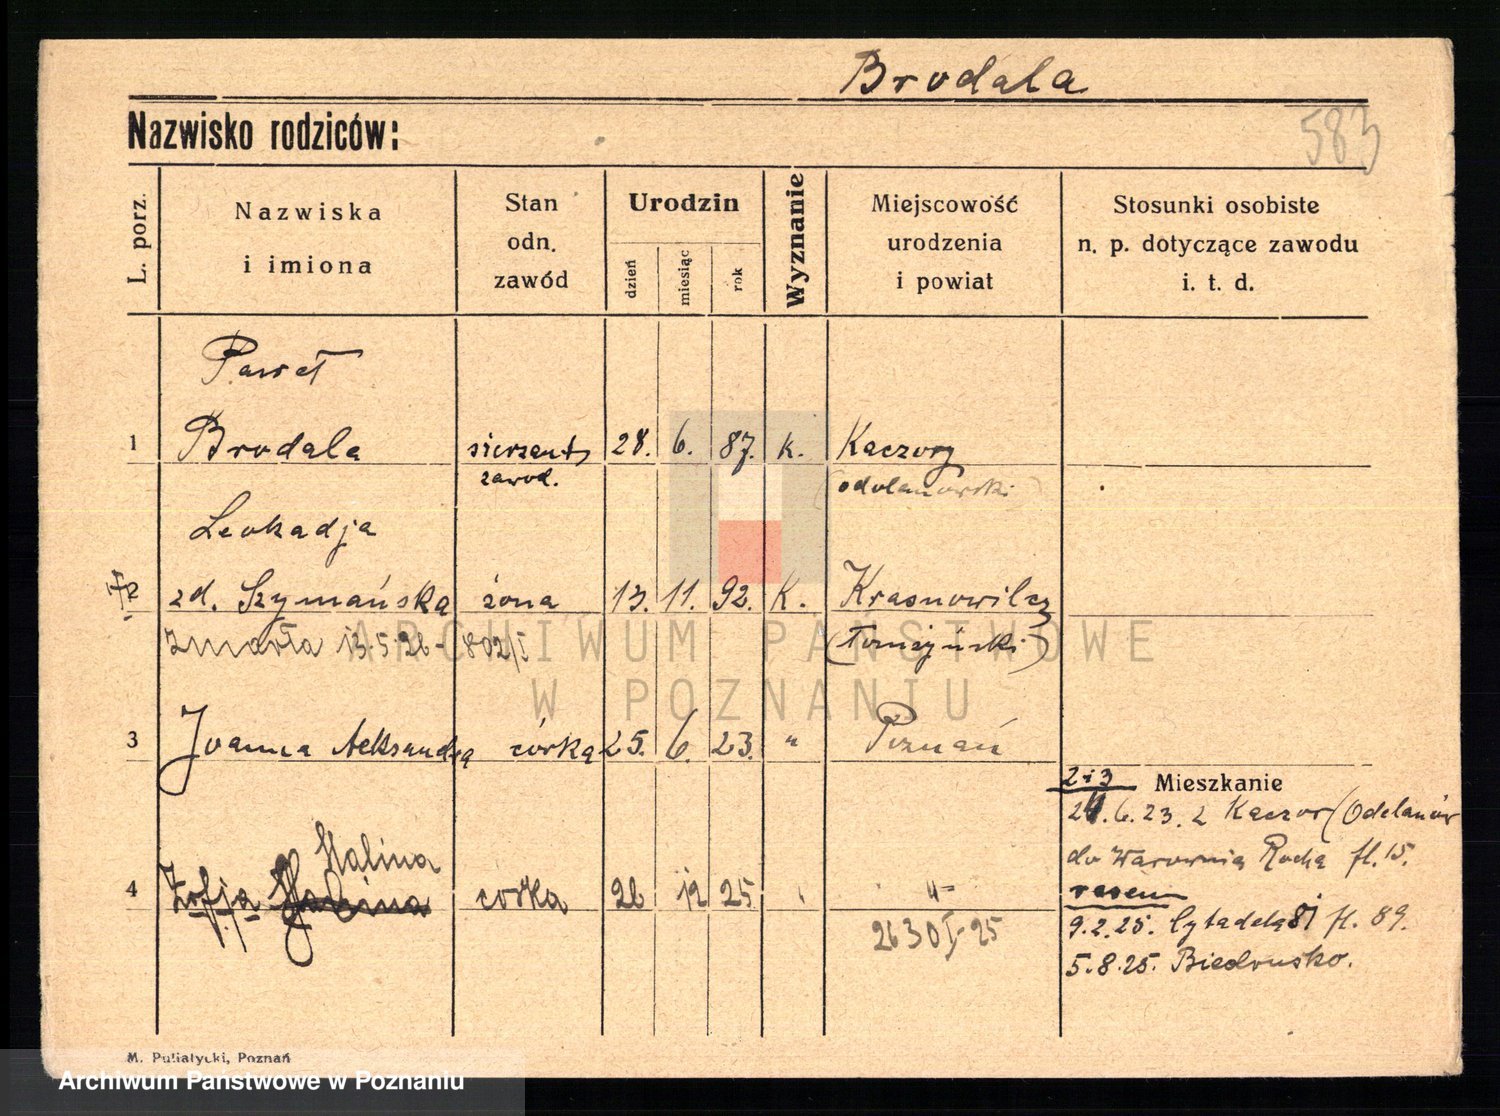 Brodala
583
Nazwisko rodziców:
L. porz.
Nazwiska
i imiona
Stan
odn.
zawód
Urodzin
dzień
miesiąc
rok
Wyznanie
Miejscowość
urodzenia
i powiat
Stosunki osobiste
n. p. dotyczące zawodu
i. t. d.
Paweł
1 Brodala sierzant 28. 6. 87. k. Kaczory
zawod. (odolanowski)
Leokadja
2 zd. Szymańska żona 13. 11. 92. K. Krasnowilcz
Zmarła 13.5.26 - 802/I (Łomżyński)
ARCHIWUM PAŃSTWOWE
W POZNANIU
3 Joanna Aleksandra córka 25. 6. 23. " Poznań
2 i 3 Mieszkanie
24.6.23. z Kaczor (Odolanów
Halina do Warownia Rocha fl. 15.
4 Zofja Halina corka 26 12 25 " razem
2630 I-25 9.2.25. Cytadela 81 fl. 89.
5.8.25. Biedrusko.
M. Puliatycki, Poznań
Archiwum Państwowe w Poznaniu